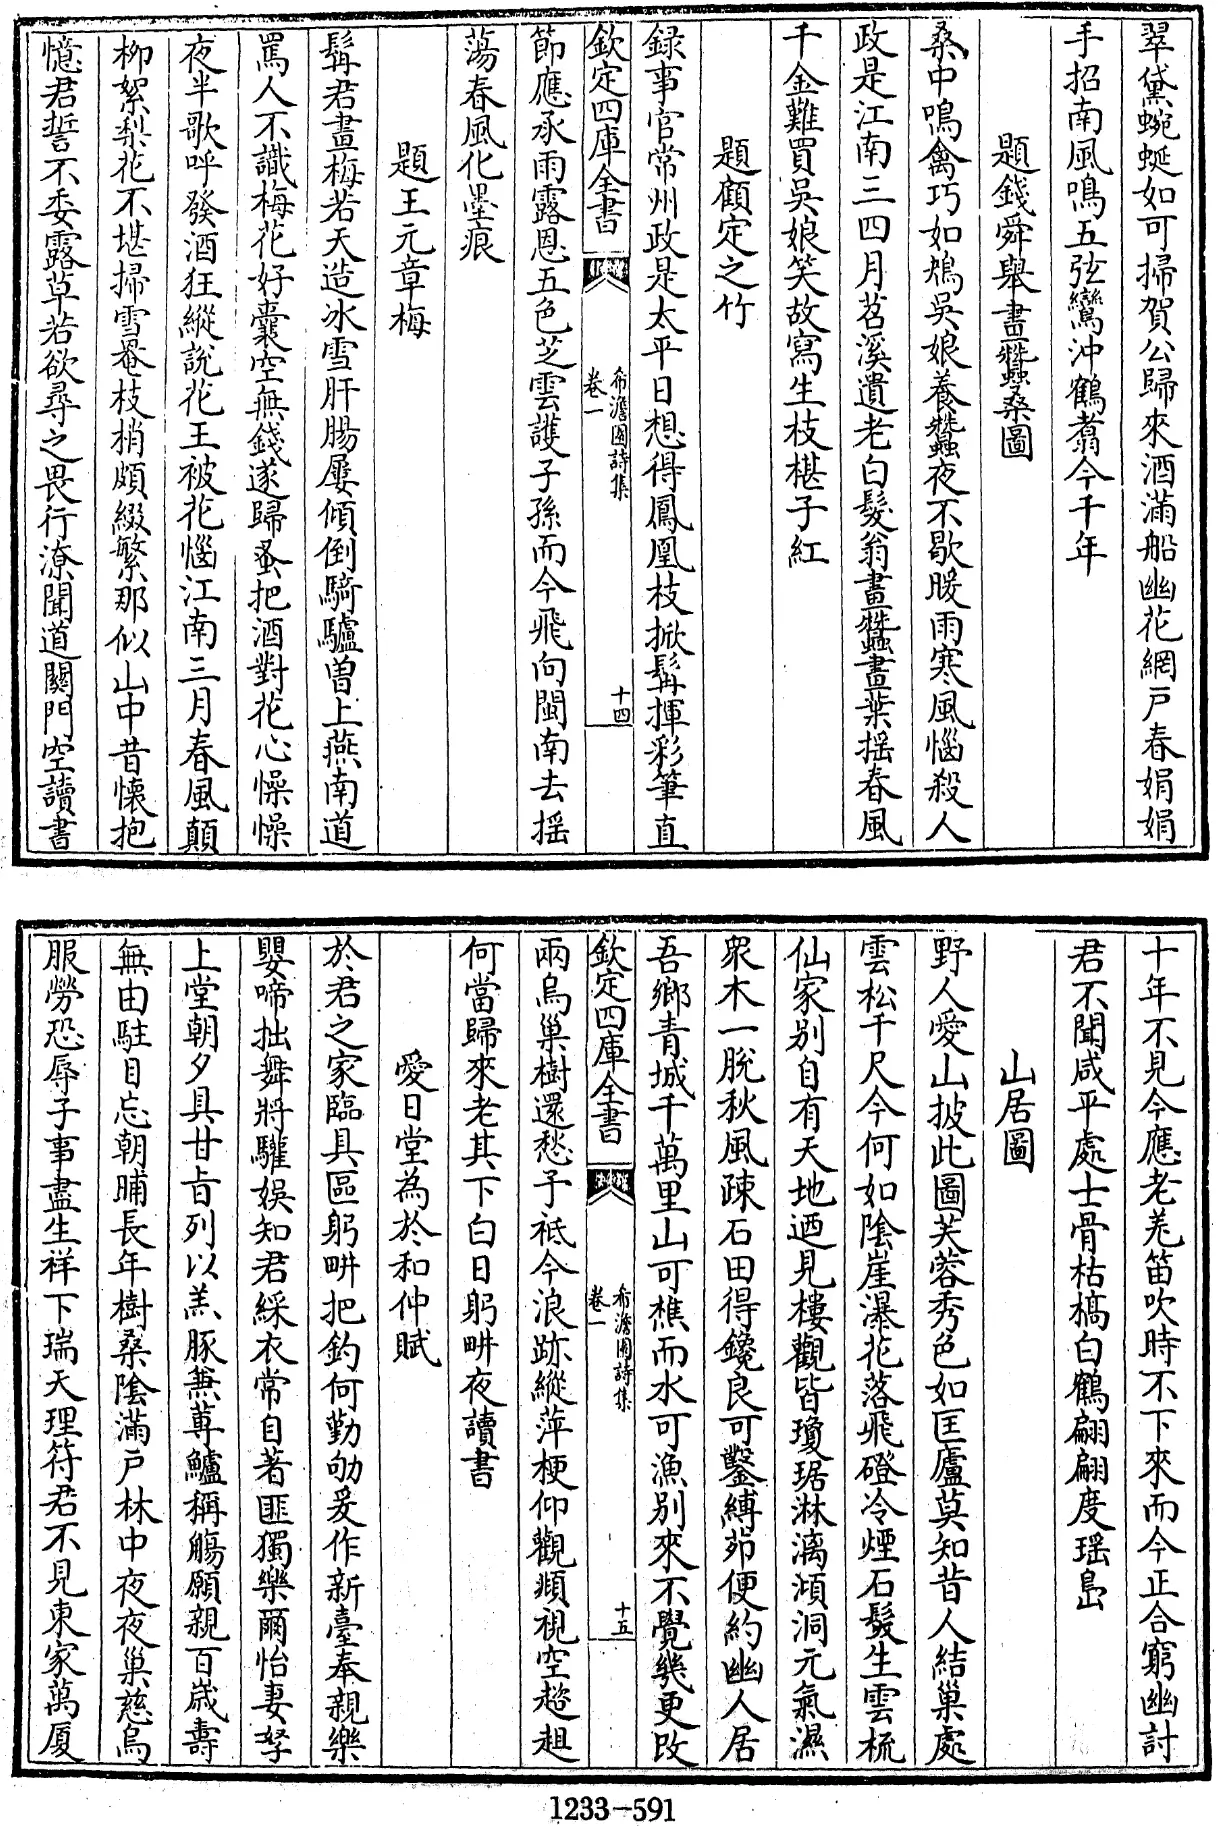 翠黛蜿蜒如可掃賀公歸來酒滿船幽花網戸春娟娟
手招南風鳴五弦鸞沖鶴翥今千年
題錢舜舉畫蠶桑圖
桑中鳴禽巧如鴂吳娘養蠶夜不歇暖雨寒風惱殺人
政是江南三四月苕溪遺老白髮翁畫蠶畫葉揺春風
千金難買吳娘笑故寫生枝椹子紅
題顧定之竹
録事官常州政是太平日想得鳳凰枝掀髯揮彩筆直
欽定四庫全書
希澹園詩集
卷一
十四
節應承雨露恩五色芝雲護子孫而今飛向閩南去揺
蕩春風化墨痕
題王元章梅
髯君畫梅若天造冰雪肝腸屢傾倒騎驢曽上燕南道
罵人不識梅花好囊空無錢遂歸蚤把酒對花心懆懆
夜半歌呼發酒狂縱說花王被花惱江南三月春風顛
柳絮梨花不堪掃雪菴枝梢頗綴繁那似山中昔懷抱
憶君誓不委露草若欲尋之畏行潦聞道闗門空讀書
十年不見今應老羌笛吹時不下來而今正合窮幽討
君不聞咸平處士骨枯槁白鶴翩翩度瑶島
山居圖
野人愛山披此圖芙蓉秀色如匡廬莫知昔人結巢處
雲松千尺今何如陰崖瀑花落飛磴冷煙石髮生雲梳
仙家别自有天地迺見樓觀皆瓊琚淋漓澒洞元氣濕
衆木一脫秋風疎石田得鑱良可鑿縳茆便約幽人居
吾鄉青城千萬里山可樵而水可漁别來不覺幾更改
欽定四庫全書
希澹園詩集
卷一
十五
兩烏巢樹還愁予祗今浪跡縱萍梗仰觀頫視空趦趄
何當歸來老其下白日躬畊夜讀書
愛日堂為於和仲賦
於君之家臨具區躬畊把釣何勤劬爰作新臺奉親樂
嬰啼拙舞將驩娯知君綵衣常自著匪獨樂爾怡妻孥
上堂朝夕具甘旨列以羔豚兼蓴鱸稱觴願親百歲壽
無由駐目忘朝晡長年樹桑陰滿戸林中夜夜巢慈烏
服勞恐辱子事盡生祥下瑞天理符君不見東家萬厦
1233-591